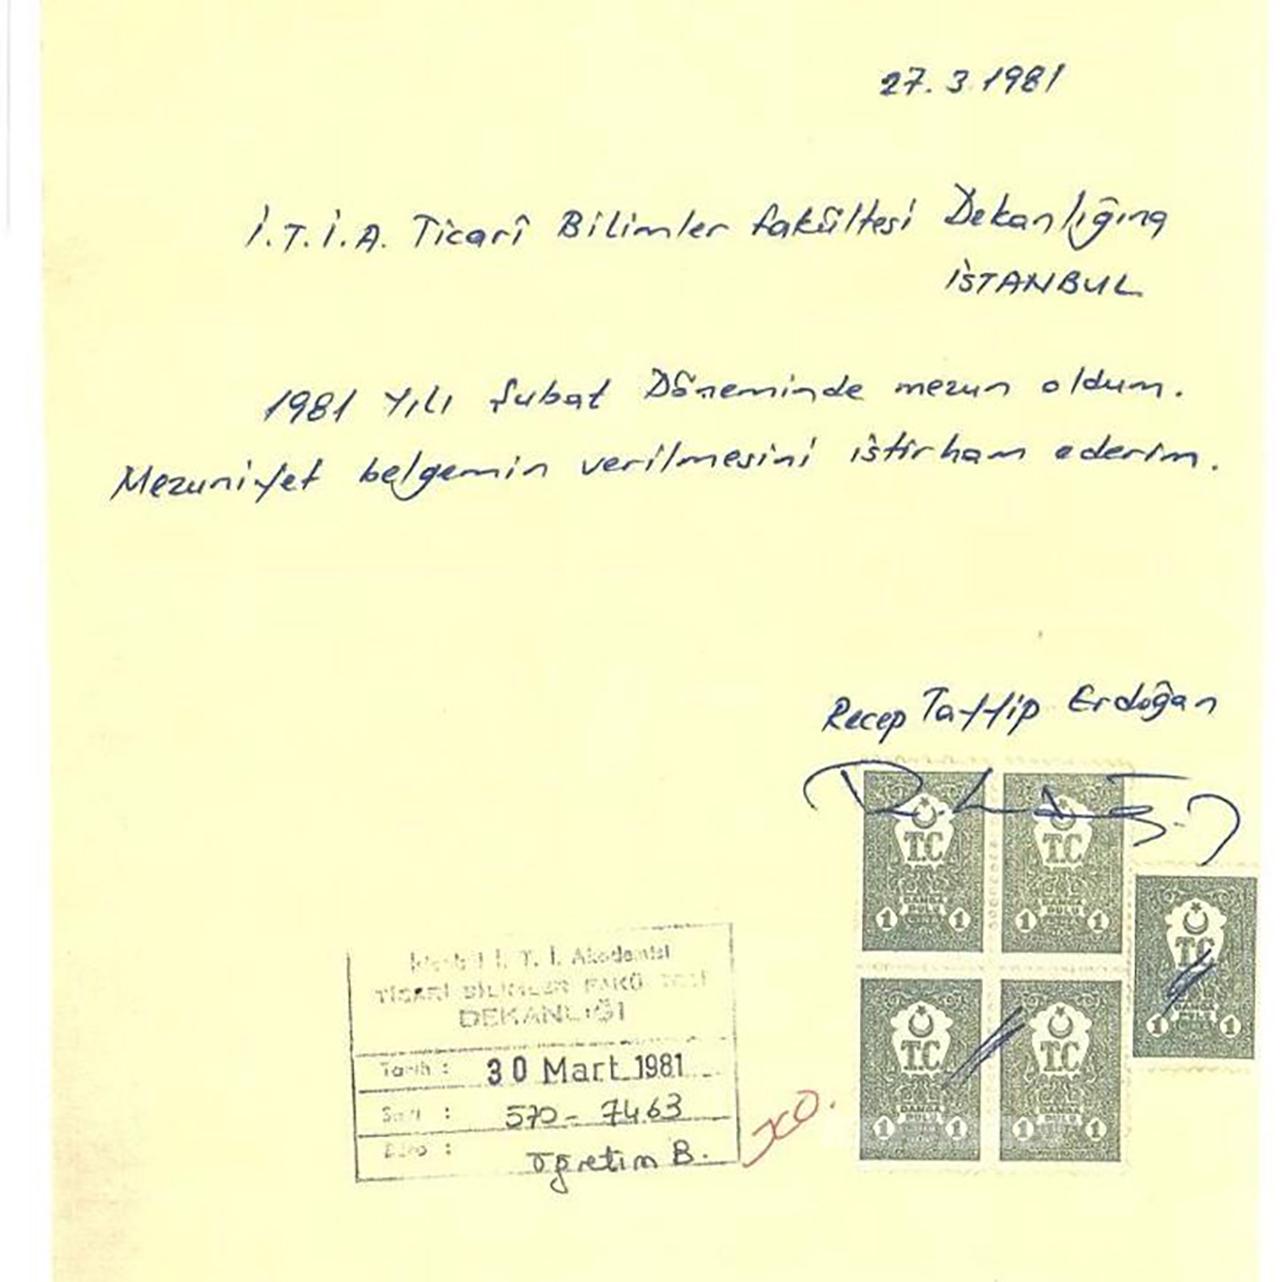 27.3.1981
İ.T.İ.A. Ticarî Bilimler fakültesi Dekanlığına
İSTANBUL
1981 Yılı Şubat Döneminde mezun oldum.
Mezuniyet belgemin verilmesini istirham ederim.
Recep Tayyip Erdoğan
T.C
T.C
DAMGA PULU
1 1
DAMGA PULU
1 1
T.C
DAMGA PULU
1 1
T.C
T.C
DAMGA PULU
1 1
DAMGA PULU
1 1
İ. T. İ. Akademisi
TİCARİ BİLİMLER
DEKANLIĞI
Tarih : 30 Mart 1981
Sayı : 570-7463
Büro : Öğretim B.